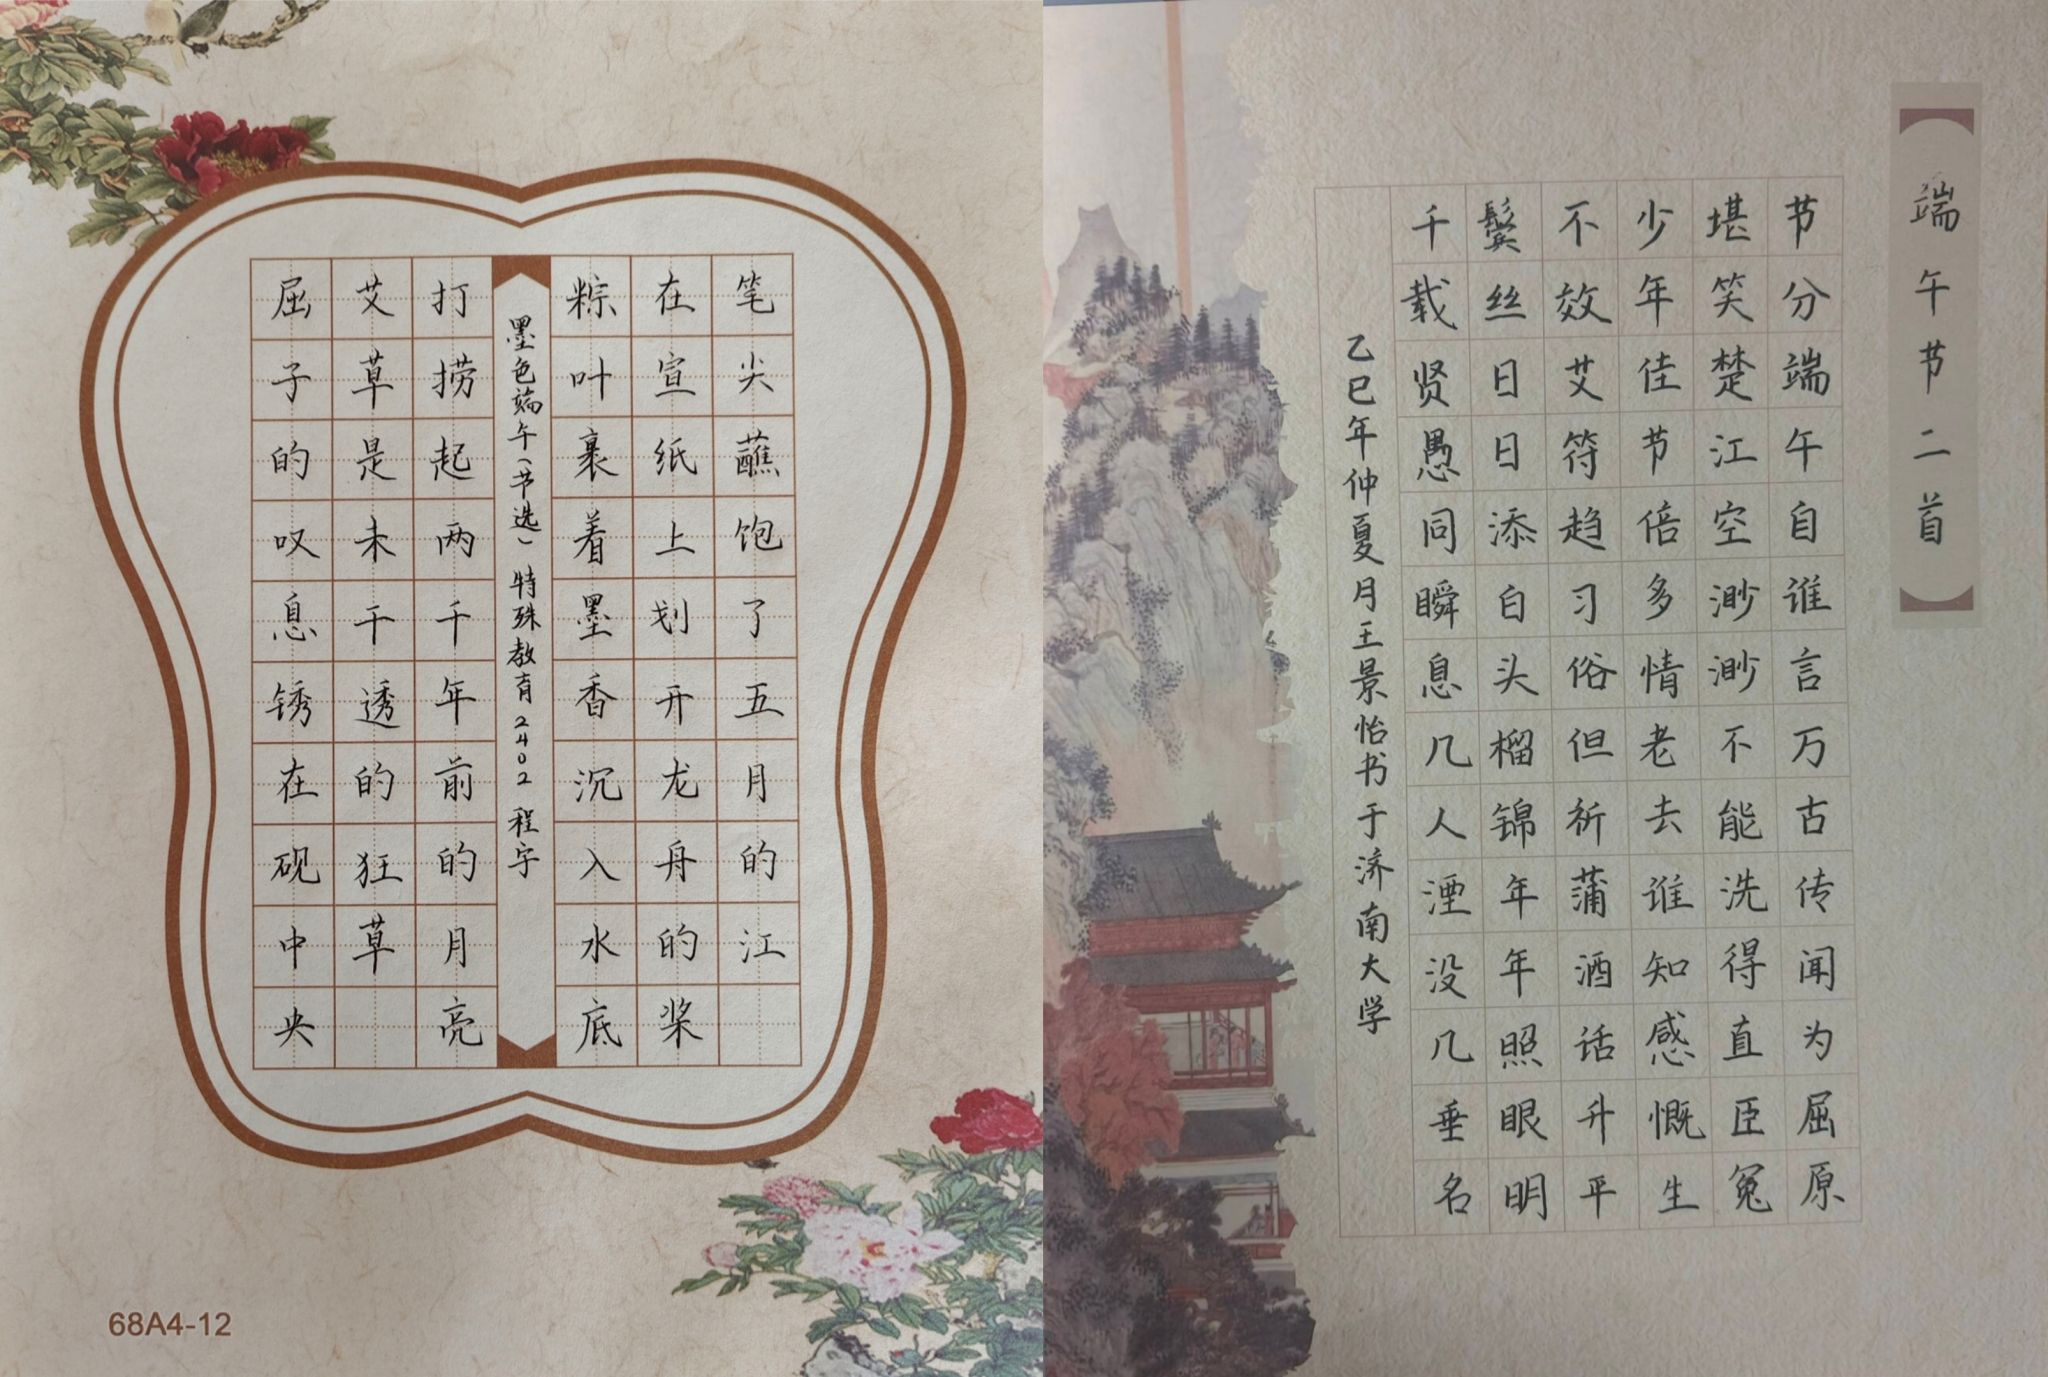 笔尖蘸饱了五月的江
在宣纸上划开龙舟的桨
粽叶裹着墨香沉入水底
墨色端午(节选) 特殊教育2402 程宇
打捞起两千年前的月亮
艾草是未干透的狂草
屈子的叹息锈在砚中央
68A4-12
端午节二首
节分端午自谁言万古传闻为屈原
堪笑楚江空渺渺不能洗得直臣冤
少年佳节倍多情老去谁知感慨生
不效艾符趋习俗但祈蒲酒话升平
鬓丝日日添白头榴锦年年照眼明
千载贤愚同瞬息几人湮没几垂名
乙巳年仲夏月王景怡书于济南大学